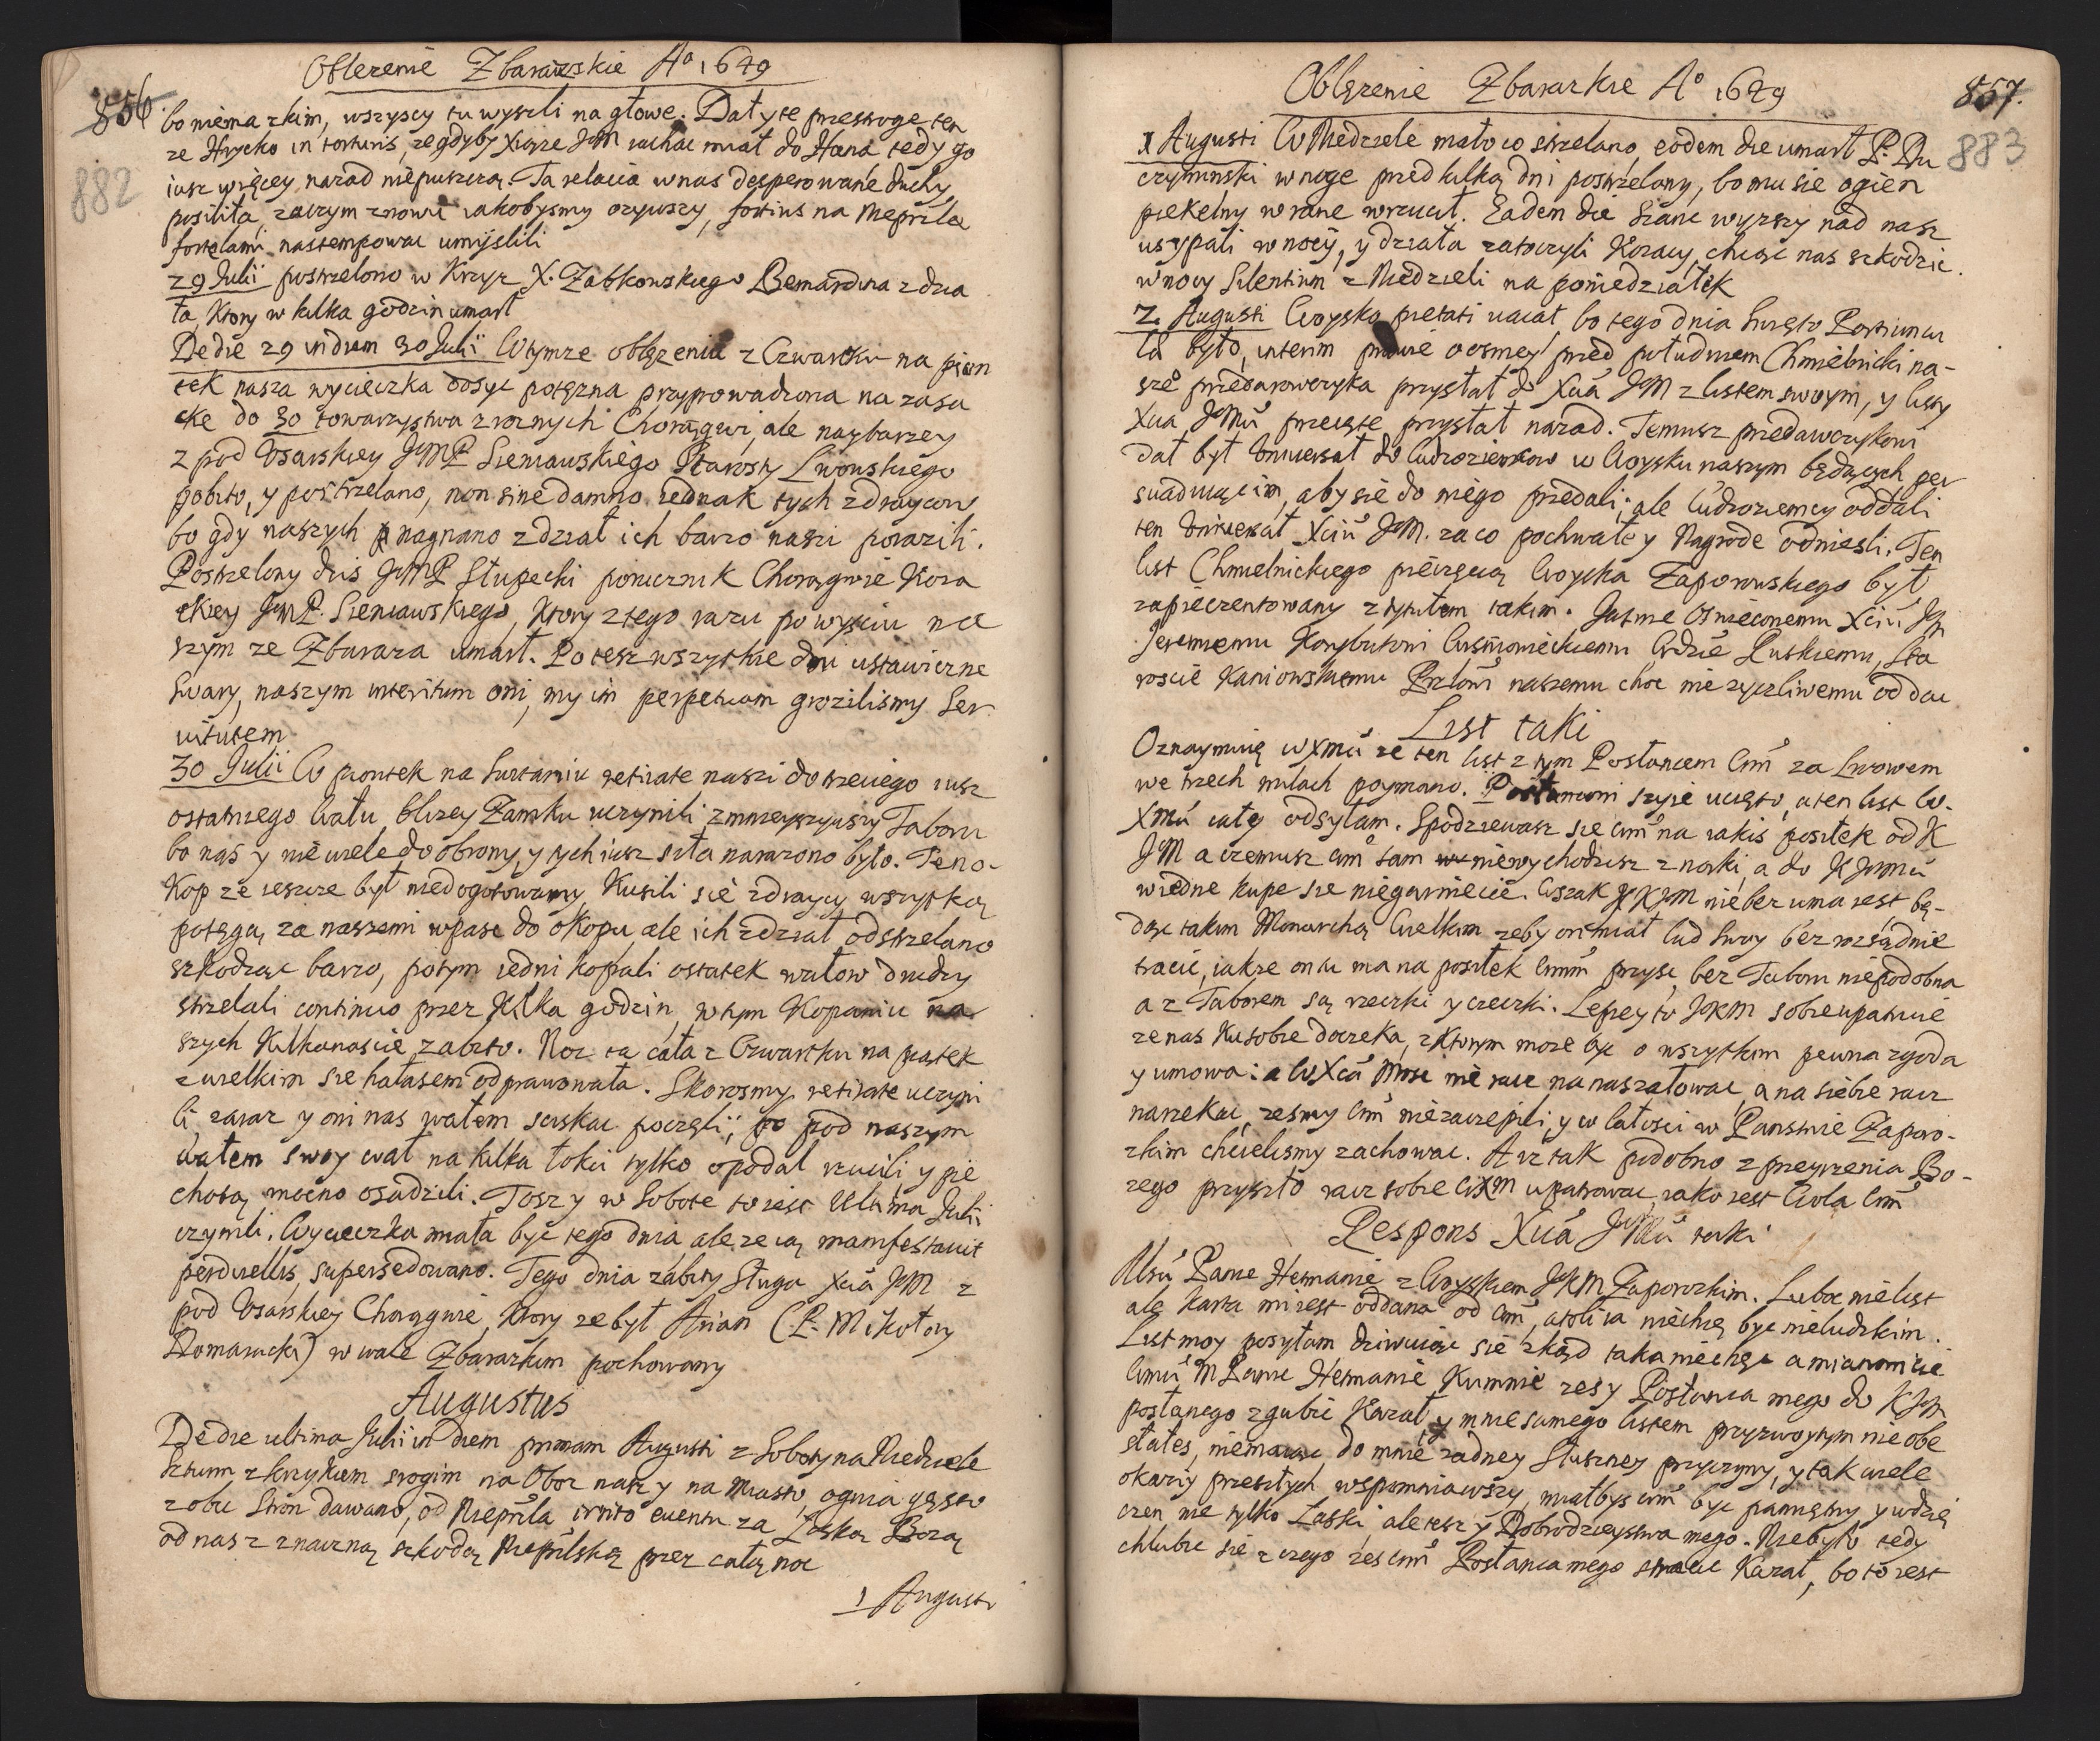 Oblezenie Zbarazskie Aº 1649
856.
882
bo niema zkim, wszyscy tu wyszli na głowe. Dał y te przestroge ten
ze Hrycko in torturis, ze gdyby Xiąze JeM iachac miał do Hana tedy go
iusz więcey nazad niepuszczą. Ta relacia w nas desperowane duchy
posiliła, zaczym znowu iakobysmy ozywszy, fortius na Nieprzla
fortelami nastempowac umyslili
29 Julii postrzelono w Krzyz X. Zabkowskiego Bernardina z dzia
ła, ktory w kilka godzin umarł
De die 29 in diem 30 Julii W tymze oblęzeniu z Czwartku na pion
tek nasza wycieczka dosyc potęzna przyprowadzona na zasa
ckę do 30 towarzystwa z roznych Chorągwi, ale naybarzey
z pod Usarskiey JeMP Sieniawskiego Starosty Lwowskiego
pobito, y postrzelano, non sine damno iednak tych zdraycow
bo gdy naszych nagnano z dział ich barzo nasi porazili.
Postrzelony dzis JeMP Słupecki porucznik Chorągwie Koza
ckiey JeMP. Sieniawskiego, ktory z tego razu po wyściu na
szym ze Zbaraza umarł. Po tesz wszytkie dni ustawiczne
swary, naszym interitum oni, my im perpetuam grozilismy Ser
vitutem
30 Julii W piontek na switaniu retirate naszi do trzeciego iusz
ostatniego wału blizey Zamku uczynili zmnieyszywszy Taboru
bo nas y nie wiele do obrony, y tych iusz siła narazono było. Ten o-
kop ze ieszcze był niedogotowany, Kusili się zdraycy wszytką
potęgą za naszemi wpasc do okopu, ale ich z dział odstrzelano
szkodząc barzo, potym iedni kopali ostatek wałow drudzy
strzelali continuo przez kilka godzin, w tym Kopaniu na
szych Kilkanascie zabito. Noc ta cała z Czwartku na piatek
z wielkim sie hałasem odprawowała. Skorosmy retirate uczyni
li zaraz y oni nas wałem sciskac poczęli, pod naszym
wałem swoy wał na kilka łokci tylko opodal rzucili y pie
chotą mocno osadzili. Tosz y w Sobote to iest Ultima Julii
czynili. Wycieczka miała byc tego dnia, ale ze ią manifestavit
perduellis, supersedowano. Tego dnia zabity Sługa Xcia JeM z
pod Usarskiey Chorągwie, ktory ze był Arian (P. Mikołay
Domaracki) w wale Zbarazkim pochowany
Augustus
De die ultima Julii in diem primam Augusti z Soboty na Niedziele
szturm z krzykiem srogim na Oboz nasz y na Miasto, ognia gęsto
z obu stron dawano, od Nieprzla irrito eventu za Łaską Bozą
od nas z znaczną szkodą Nieprzlską przez całą noc
1 Augusti
Oblęzenie Zbarazkie Aº 1649
857.
883
1 Augusti W Niedziele mało co strzelano, eodem die umarł P. Du
czyminski w noge przed kilką dni postrzelony, bo mu sie ogien
piekelny w rane wrzucił. Eadem die Szanc wyzszy nad nasz
usypali w nocy, y działa zatoczyli Kozacy, chcąc nas szkodzic.
w nocy Silentium z Niedzieli na poniedziałek
2. Augusti Woysko pietati vacat, bo tego dnia Swięto Portiuncu
la było, interim prawie o osmey przed południem Chmielnicki na-
sze przedawczyka przysłał do Xcia JeM z listem swoym, y listy
Xcia JeMci przeięte przysłał nazad. Temusz przedawczykowi
dał był Uniwersał do Cudzoziemcow w Woysku naszym będących per
suaduiąc im, aby sie do niego przedali, ale Cudzoziemcy oddali
ten Uniwersał Xciu JeM. za co pochwałe y Nagrode odniesli. Ten
list Chmielnickiego pieczęcią Woyska Zaporowskiego był
zapieczentowany z tytułem takim. Jasnie Osnieconemu Xciu Jeo
Jeremiemu Korybutowi Wisniowieckiemu Wdzie Ruskiemu, Sta
roscie Kaniowskiemu Przłowi naszemu choc nie zyczliwemu oddac
List taki
Oznaymuię WXMci ze ten list z tym Posłancem Wm za Lwowem
we trzech milach poymano. Posłancowi szyie ucięto, a ten list W.
XMci cały odsyłam. Spodziewasz sie Wm na iakis posiłek od K
JeM a czemusz Wm sam niewychodzisz z norki, a do KJeMci
w iedne kupe sie niegarniecie. Wszak JKJeM nie bez uma iest bę-
dąc takim Monarchą Wielkim zeby on miał lud swoy bez rozsądnie
tracic, iakze on tu ma na posiłek Wmm przysc, bez Taboru niepodobna
a z Taborem są rzeczki y czeczki. Lepiey to JKM sobie upatruie
ze nas Ku sobie doczeka, z Ktorym moze byc o wszytkim pewna zgoda
y umowa: a WXca Mosc nie racz na nas załowac, a na siebie racz
narzekac, zesmy Wm niezaczepili, y w całosci w Panstwie Zaporo-
zkim chcielismy zachowac. A iz tak podobno z przeyrzenia Bo-
zego przyszło racz sobie WXM upatrowac, iako iest Wola Wm
Respons Xcia JeMci taki
Msci Panie Hetmanie z Woyskiem JKM Zaporozkim. Luboc nie list
ale karta mi iest oddana od Wm, atoli ia niechcę byc nieludzkim.
List moy posyłam dziwuiąc sie zkąd taka niechęc a mianowicie
Wmci M Panie Hetmanie Kumnie zes y Posłanca mego do KJM
posłanego zgubic Kazał, y mnie samego listem przyzwoytym nie obe
słałes, niemaiac do mnie zadney słuszney przyczyny, y tak wiele
okaziy przeszłych wspomniawszy, miałbys Wm byc pamiętny y wdzię
czen nie tylko Łaski, ale tesz y Dobrodzieystwa mego. Niebyło tedy
chlubic sie z czego zes Wm Posłanca mego stracic Kazał, bo to iest